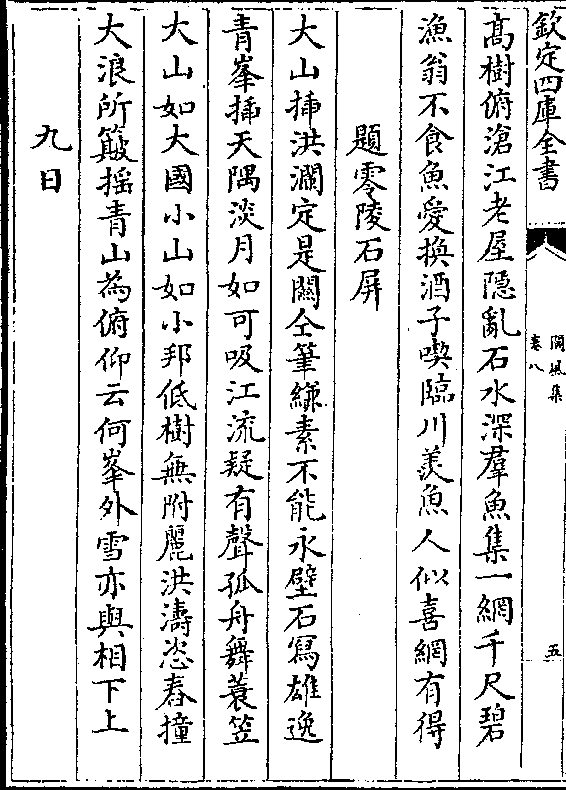 欽定四庫全書
閬風集
卷八
五
髙樹俯滄江老屋隱亂石水深羣魚集一網千尺碧
漁翁不食魚愛換酒子喫臨川羡魚人似喜網有得
題零陵石屏
大山揷洪瀾定是關仝筆縑素不能永壁石寫雄逸
青峯揷天隅淡月如可吸江流疑有聲孤舟舞蓑笠
大山如大國小山如小邦低樹無附麗洪濤恣舂撞
大浪所簸揺青山為俯仰云何峯外雪亦與相下上
九日